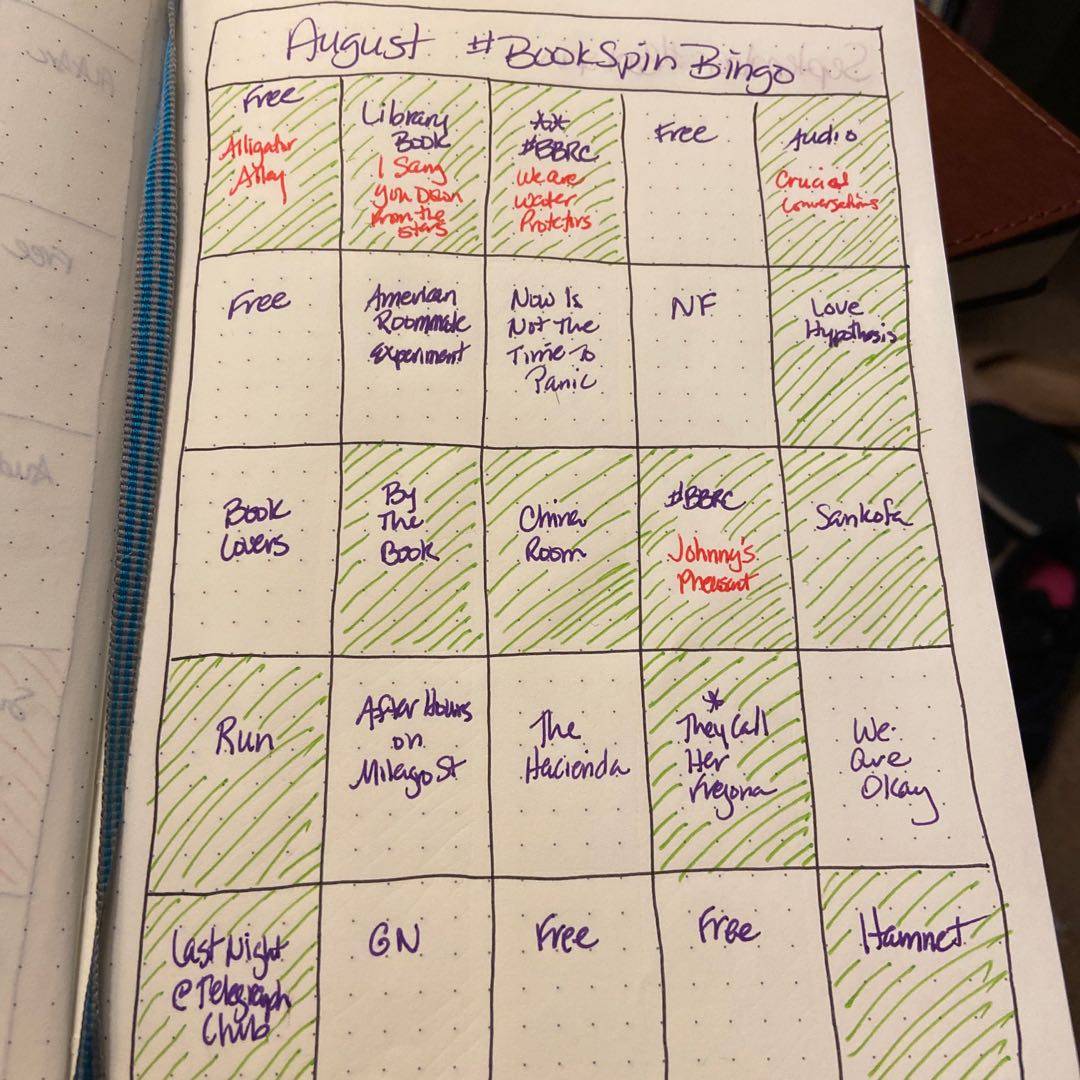 August #BookSpinBingo
Free
Alligator
Alley
Library
Book
I Sang
You Down
From the
Stars
**
#BBRC
We are
Water
Protectors
Free
Audio
Crucial
Conversations
Free
American
Roommate
Experiment
Now Is
Not The
Time To
Panic
NF
Love
Hypothesis
Book
Lovers
By
The
Book
China
Room
#BBRC
Johnny's
Pheasant
Sankofa
Run
After Hours
on
Milago St
The
Hacienda
*
They Call
Her
Fregona
We
are
Okay
Last Night
@ Telegraph
Club
GN
Free
Free
Hamnet